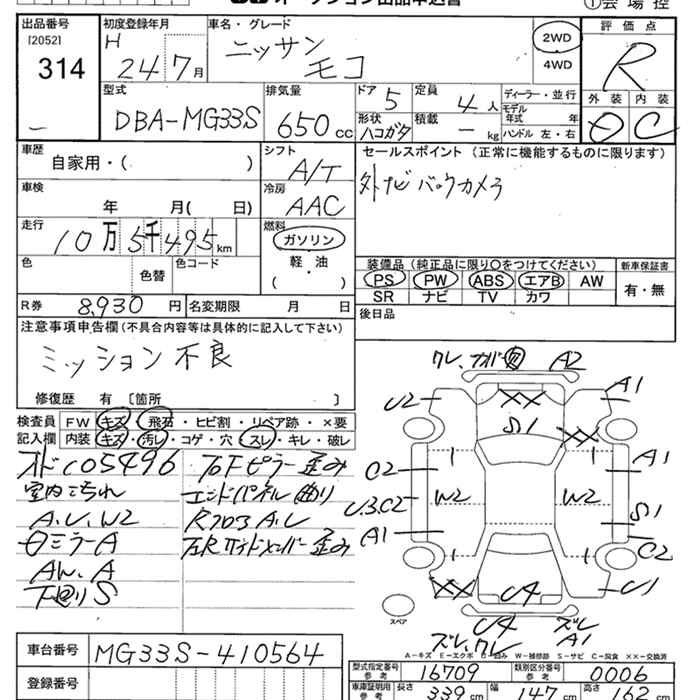 オークション出品申込書
①会場控
出品番号
[2052]
314
初度登録年月
H
24 7月
車名・グレード
ニッサン
モコ
2WD
4WD
評価点
R
外装 内装
D C
型式
DBA-MG33S
排気量
650 cc
ドア
5
定員
4 人
形状
ハコガタ
積載
- kg
ディーラー・並行
モデル年式 年
ハンドル 左・右
車歴
自家用・( )
シフト
A/T
セールスポイント (正常に機能するものに限ります)
外ナビ バックカメラ
車検
年 月( 日)
冷房
AAC
走行
10万5千495km
燃料
ガソリン
軽・油
( ・ )
色
色替
色コード
装備品(純正品に限り〇をつけてください)
PS PW ABS エアB AW
SR ナビ TV カワ
新車保証書
有・無
R券 8,930 円
名変期限 月 日
後日品
注意事項申告欄(不具合内容等は具体的に記入して下さい)
ミッション不良
修復歴 有 〔箇所 〕
検査員記入欄
FW キズ・飛石・ヒビ割・リペア跡・×要
内装 キズ・汚レ・コゲ・穴・スレ・キレ・破レ
室内ヨゴレ
A.U.W2
ミラーA
下廻りS
左右Fピラー歪み
エンドパネル曲り
RフロアA.U
左Rサイドメンバー歪み
A2
U2
XX
S1
A1
XX
C2
A1
U.3.C2
W2
W2
S1
A1
C2
XX
U4
U1
スペア
U4
ズレ、ワレ
ズレ
A1
A-キズ E-エクボ U-凹み W-補修跡 S-サビ C-腐食 XX-交換済
車台番号
MG33S-410564
登録番号
型式指定番号 参考
16709
類別区分番号 参考
0006
車庫証明用 参考
長さ 339 cm
幅 147 cm
高さ 162 cm